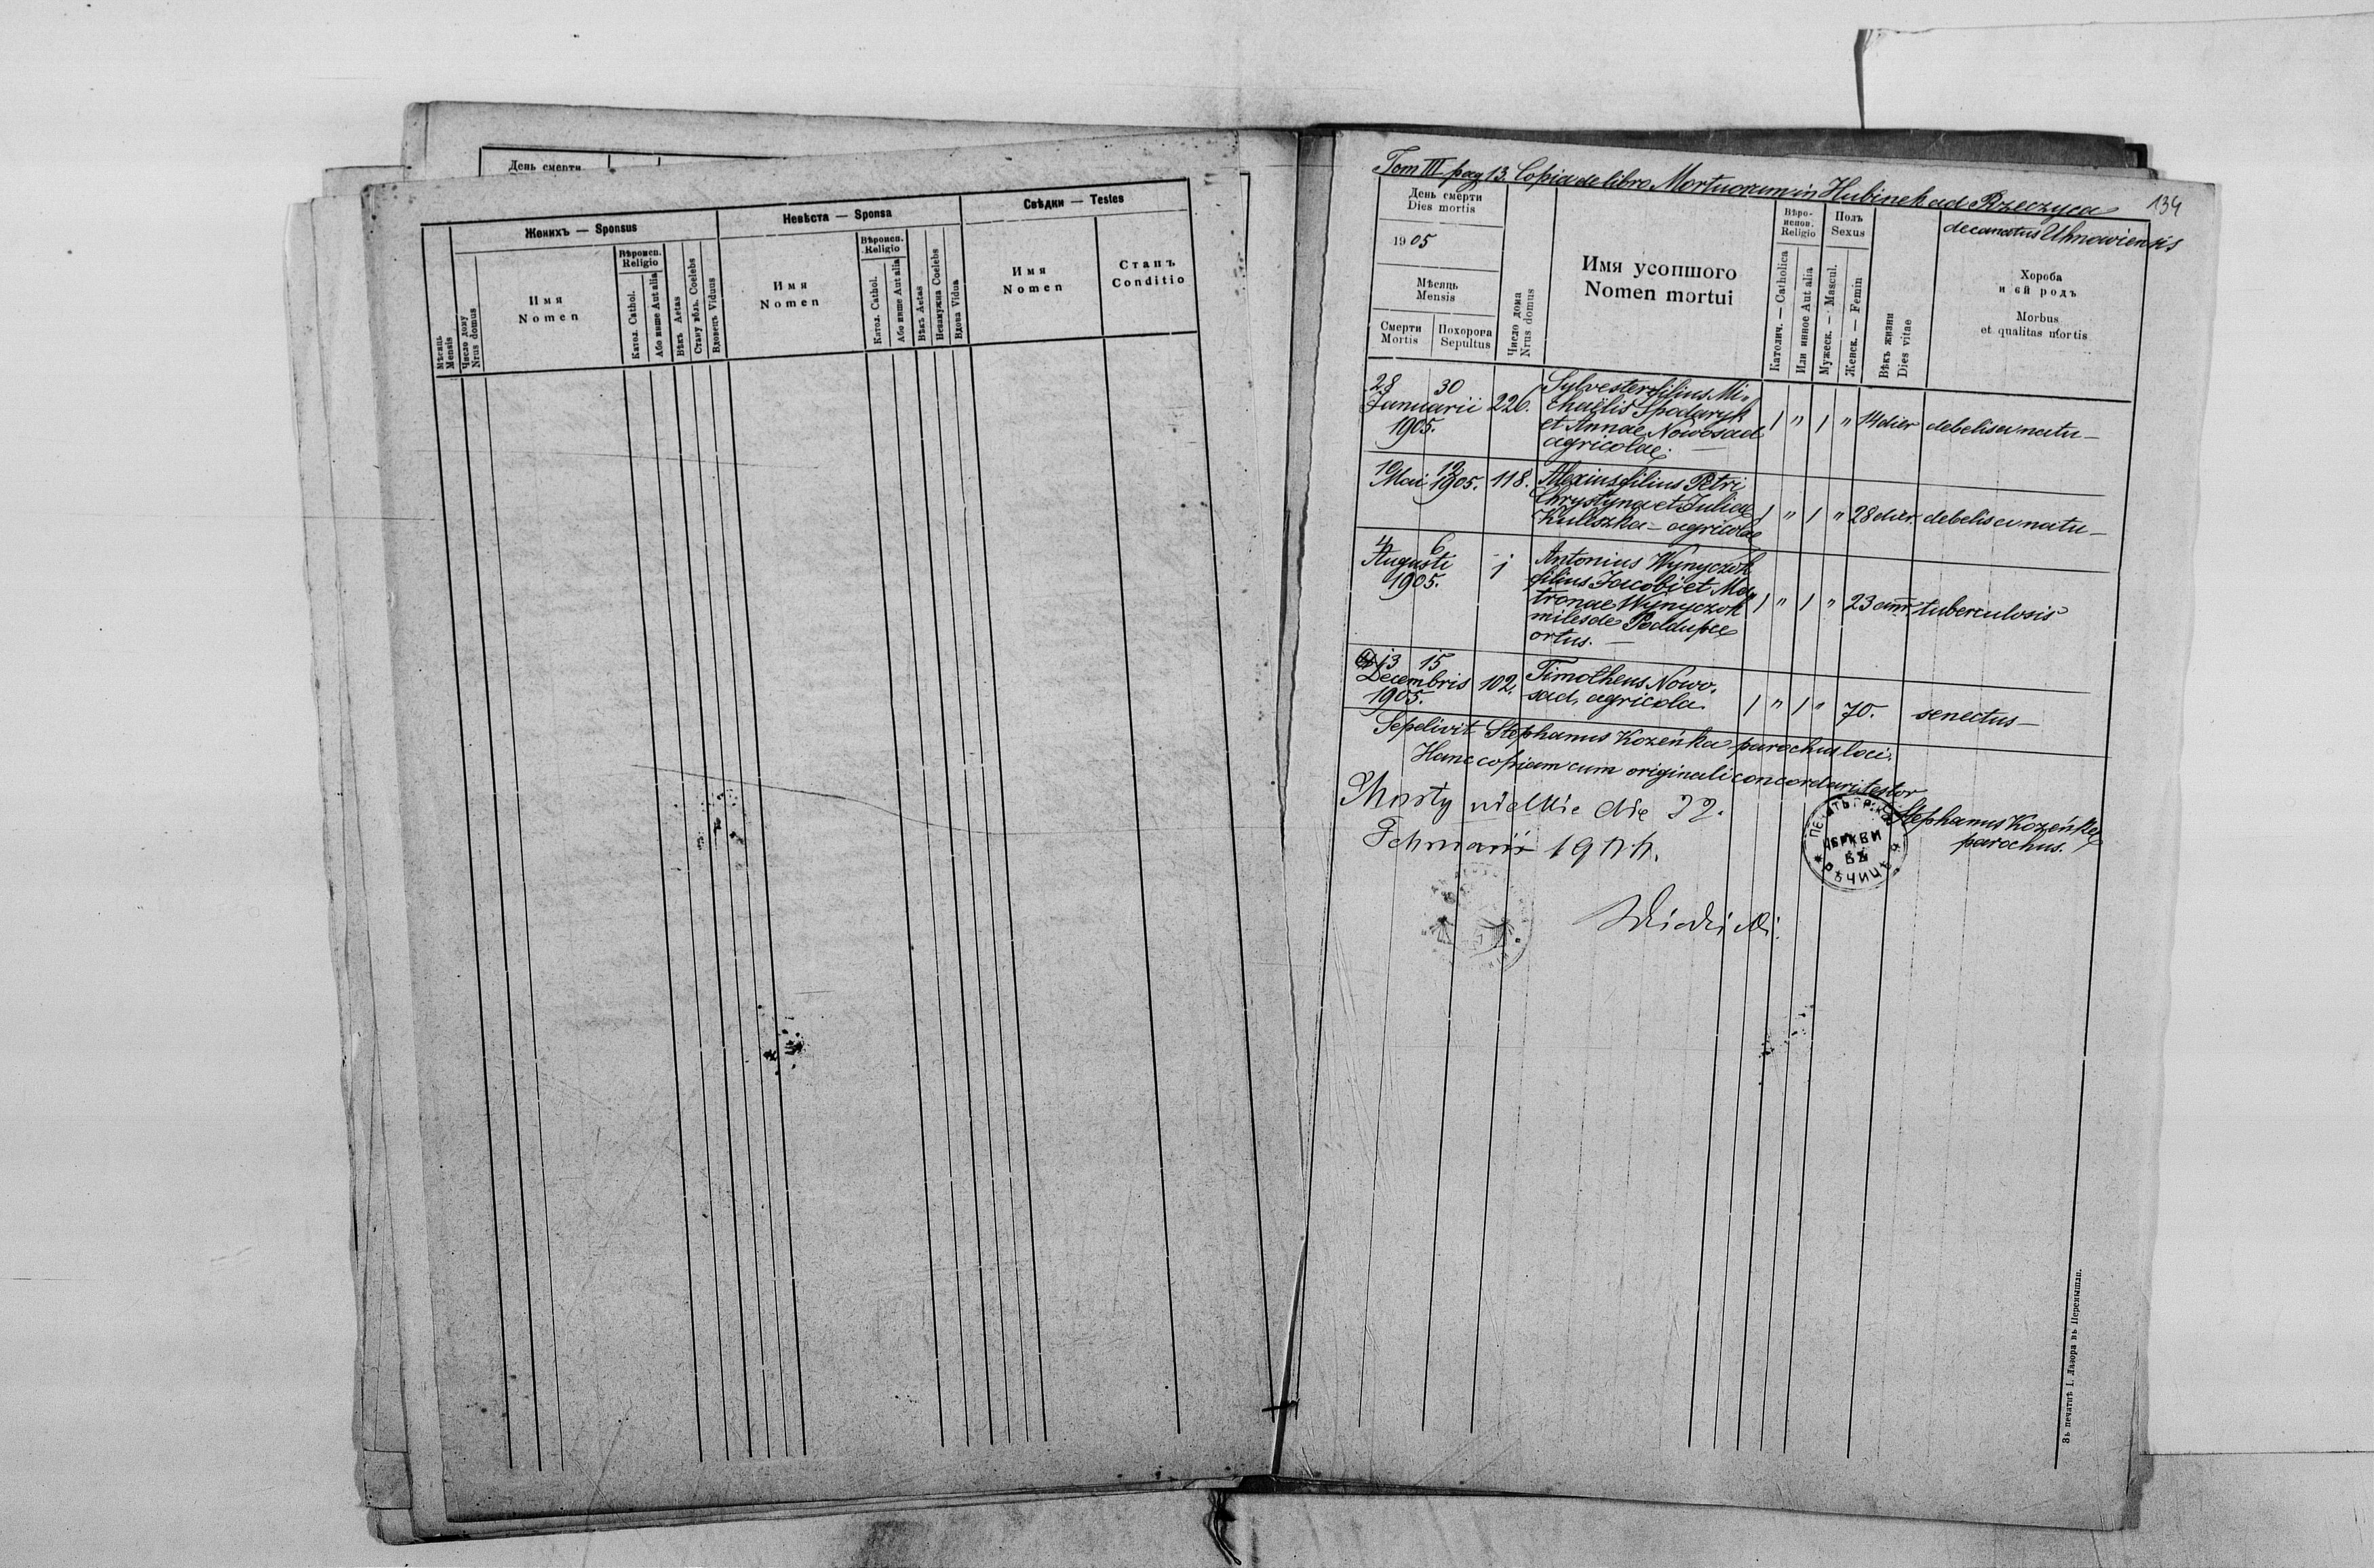 День смерти
Женихъ — Sponsus
Невѣста — Sponsa
Свѣдки — Testes
Мѣсяць
Mensis
Число дому
Nrus domus
Имя
Nomen
Вѣроисп.
Religio
Катол. Cathol.
Або инше Aut alia
Вѣкъ Aetas
Стану вôль. Coelebs
Вдовець Viduus
Имя
Nomen
Вѣроисп.
Religio
Катол. Cathol.
Або инше Aut alia
Вѣкъ Aetas
Незамужна Coelebs
Вдова Vidua
Имя
Nomen
Станъ
Conditio
Tom III pag 13. Copia de libro Mortuorum in Hubinek ad Rzeczyca
134
decanatus Uhnowiensis
День смерти
Dies mortis
1905
Мѣсяць
Mensis
Смерти
Mortis
Похорона
Sepultus
Число дома
Nrus domus
Имя усопшого
Nomen mortui
Вѣро-
испов.
Religio
Католич. — Catholica
Или инное Aut alia
Полъ
Sexus
Мужеск. — Mascul.
Женск. — Femin
Вѣкъ жизни
Dies vitae
Хороба
и єй родъ
Morbus
et qualitas mortis
28 30 Sylvester filius Mi-
Januarii 226. chaëlis Spodaryk
1905. et Annae Nowosad 1 " 1 " 14 dier debelis a natu —
agricolae. —
10 12 118. Alexius filius Petri
Mai 1905. Chrystyna et Julia
Kuleszka — agricolae 1 " 1 " 28 dier. debelis a natu —
4 6 1 Antonius Wynyczok
Augusti filius Jacobi et Ma-
1905. tronae Wynyczok 1 " 1 " 23 ann. tuberculosis
miles de Poddupce
ortus. —
13 15 Timotheus Nowo-
Decembris 102. sad, agricola. 1 " 1 " 70. senectus —
1905.
Sepelivit Stephanus Kozeńka parochus loci.
Hanc copiam cum originali concordari testor
Stephanus Kozeńka
parochus.
Mosty wielkie die 22.
Februarii
ПЕЧАТЬ ГР. К.
ЦЕРКВИ
ВЪ
РѢЧИЦѢ
Зъ печатнѣ І. Лазора въ Перемышли.